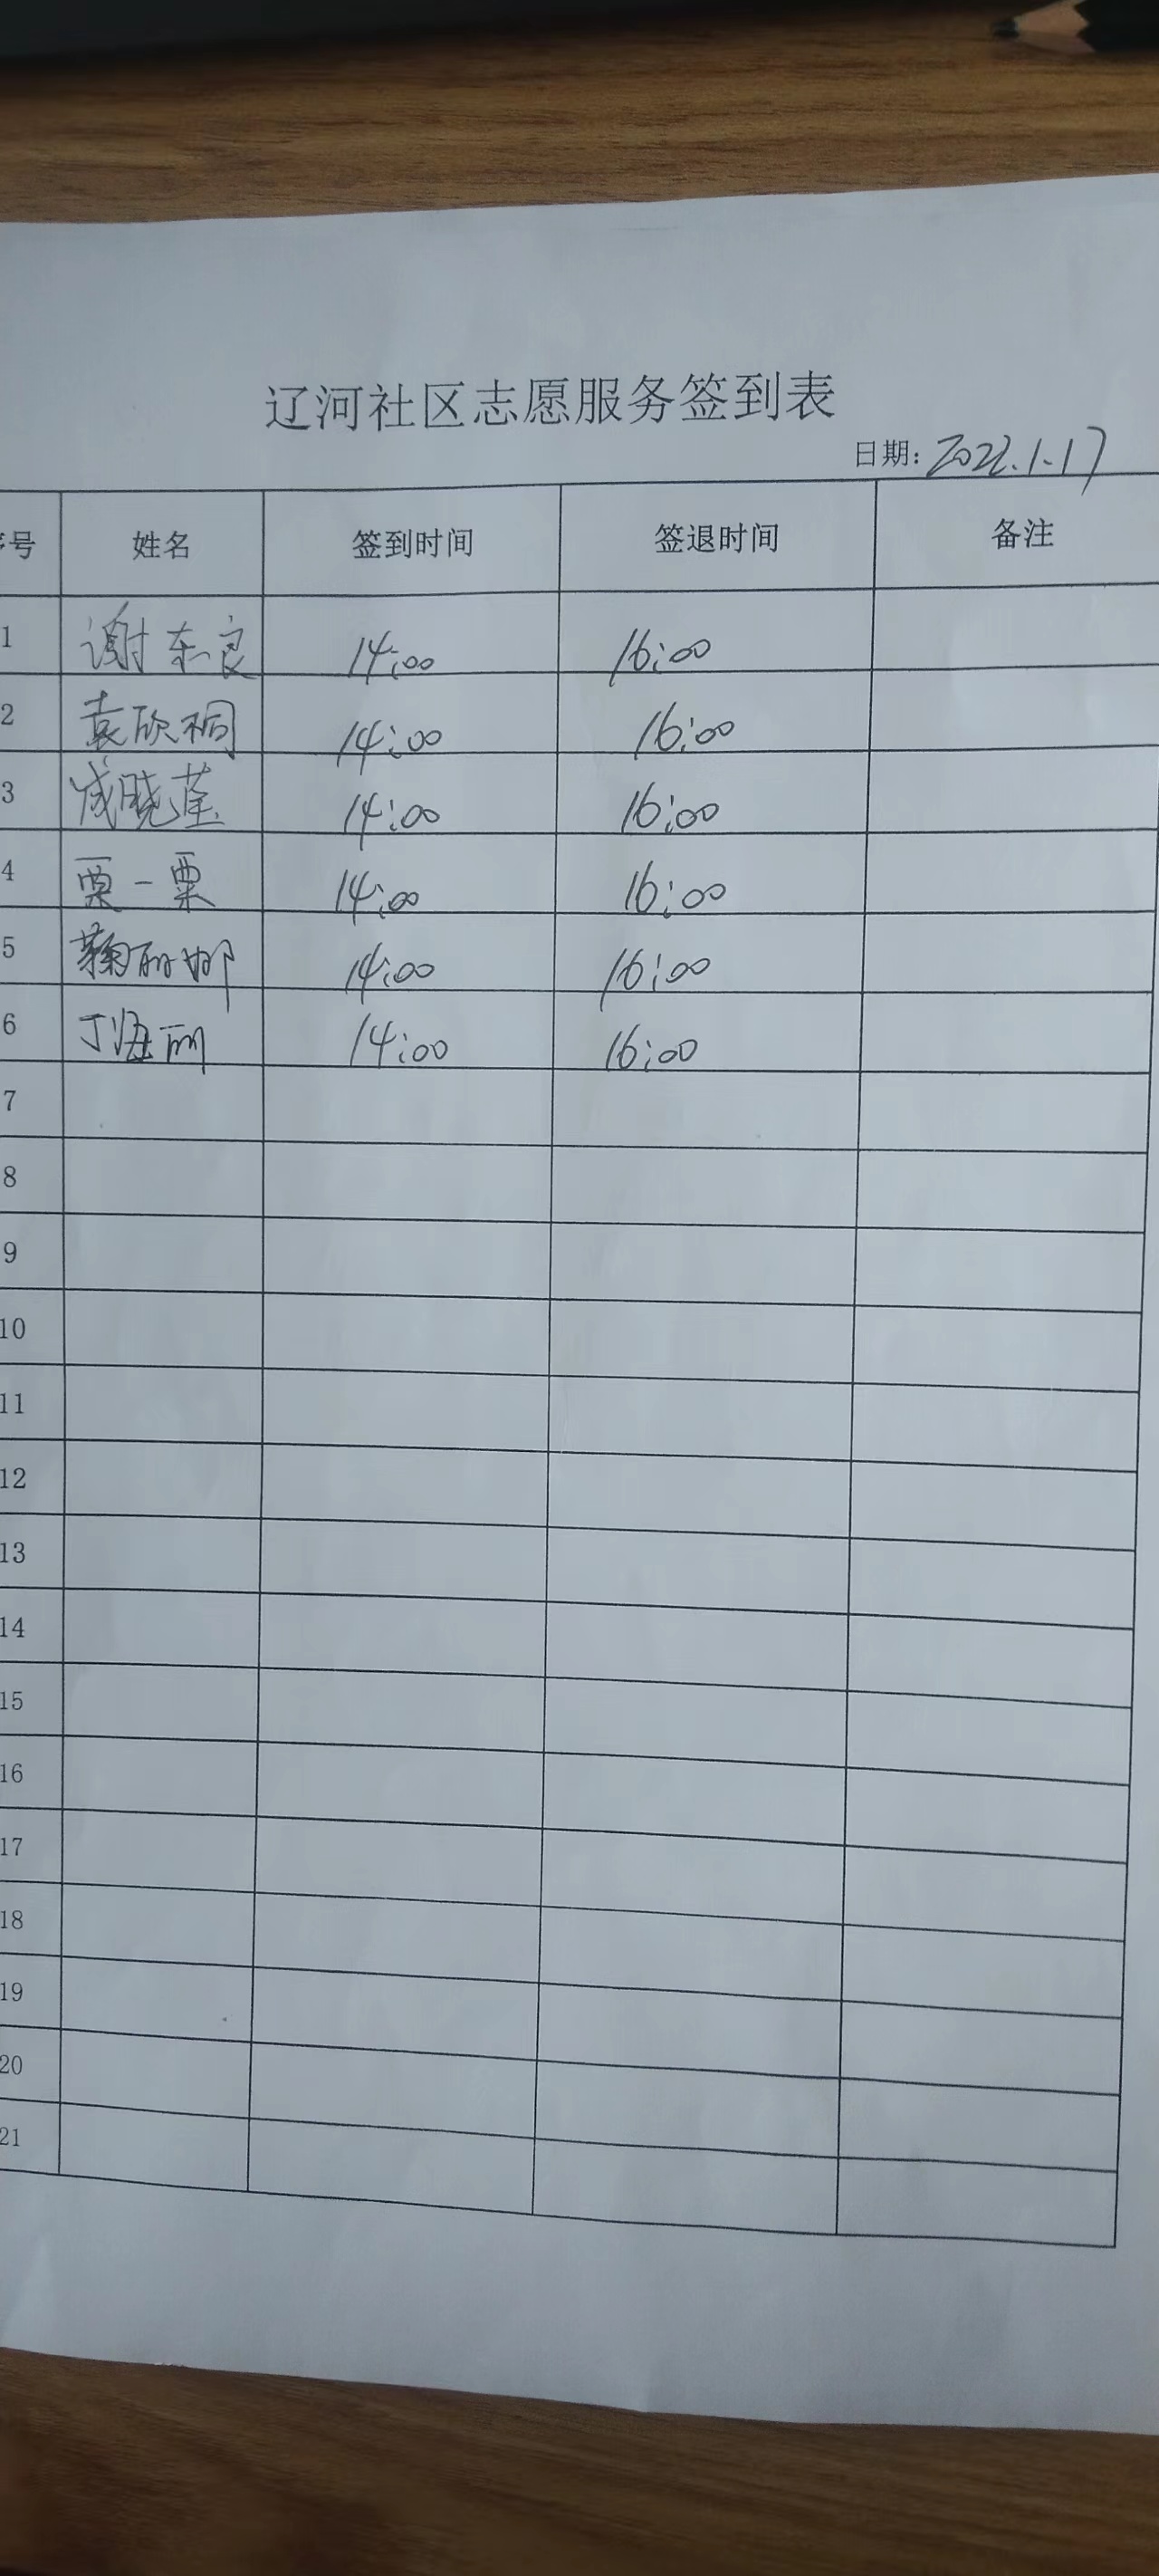 辽河社区志愿服务签到表
日期: 2022.1.17
序号 姓名 签到时间 签退时间 备注
1 谢东良 14:00 16:00
2 袁欣桐 14:00 16:00
3 成晓莹 14:00 16:00
4 粟一粟 14:00 16:00
5 鞠丽娜 14:00 16:00
6 丁海丽 14:00 16:00
7
8
9
10
11
12
13
14
15
16
17
18
19
20
21